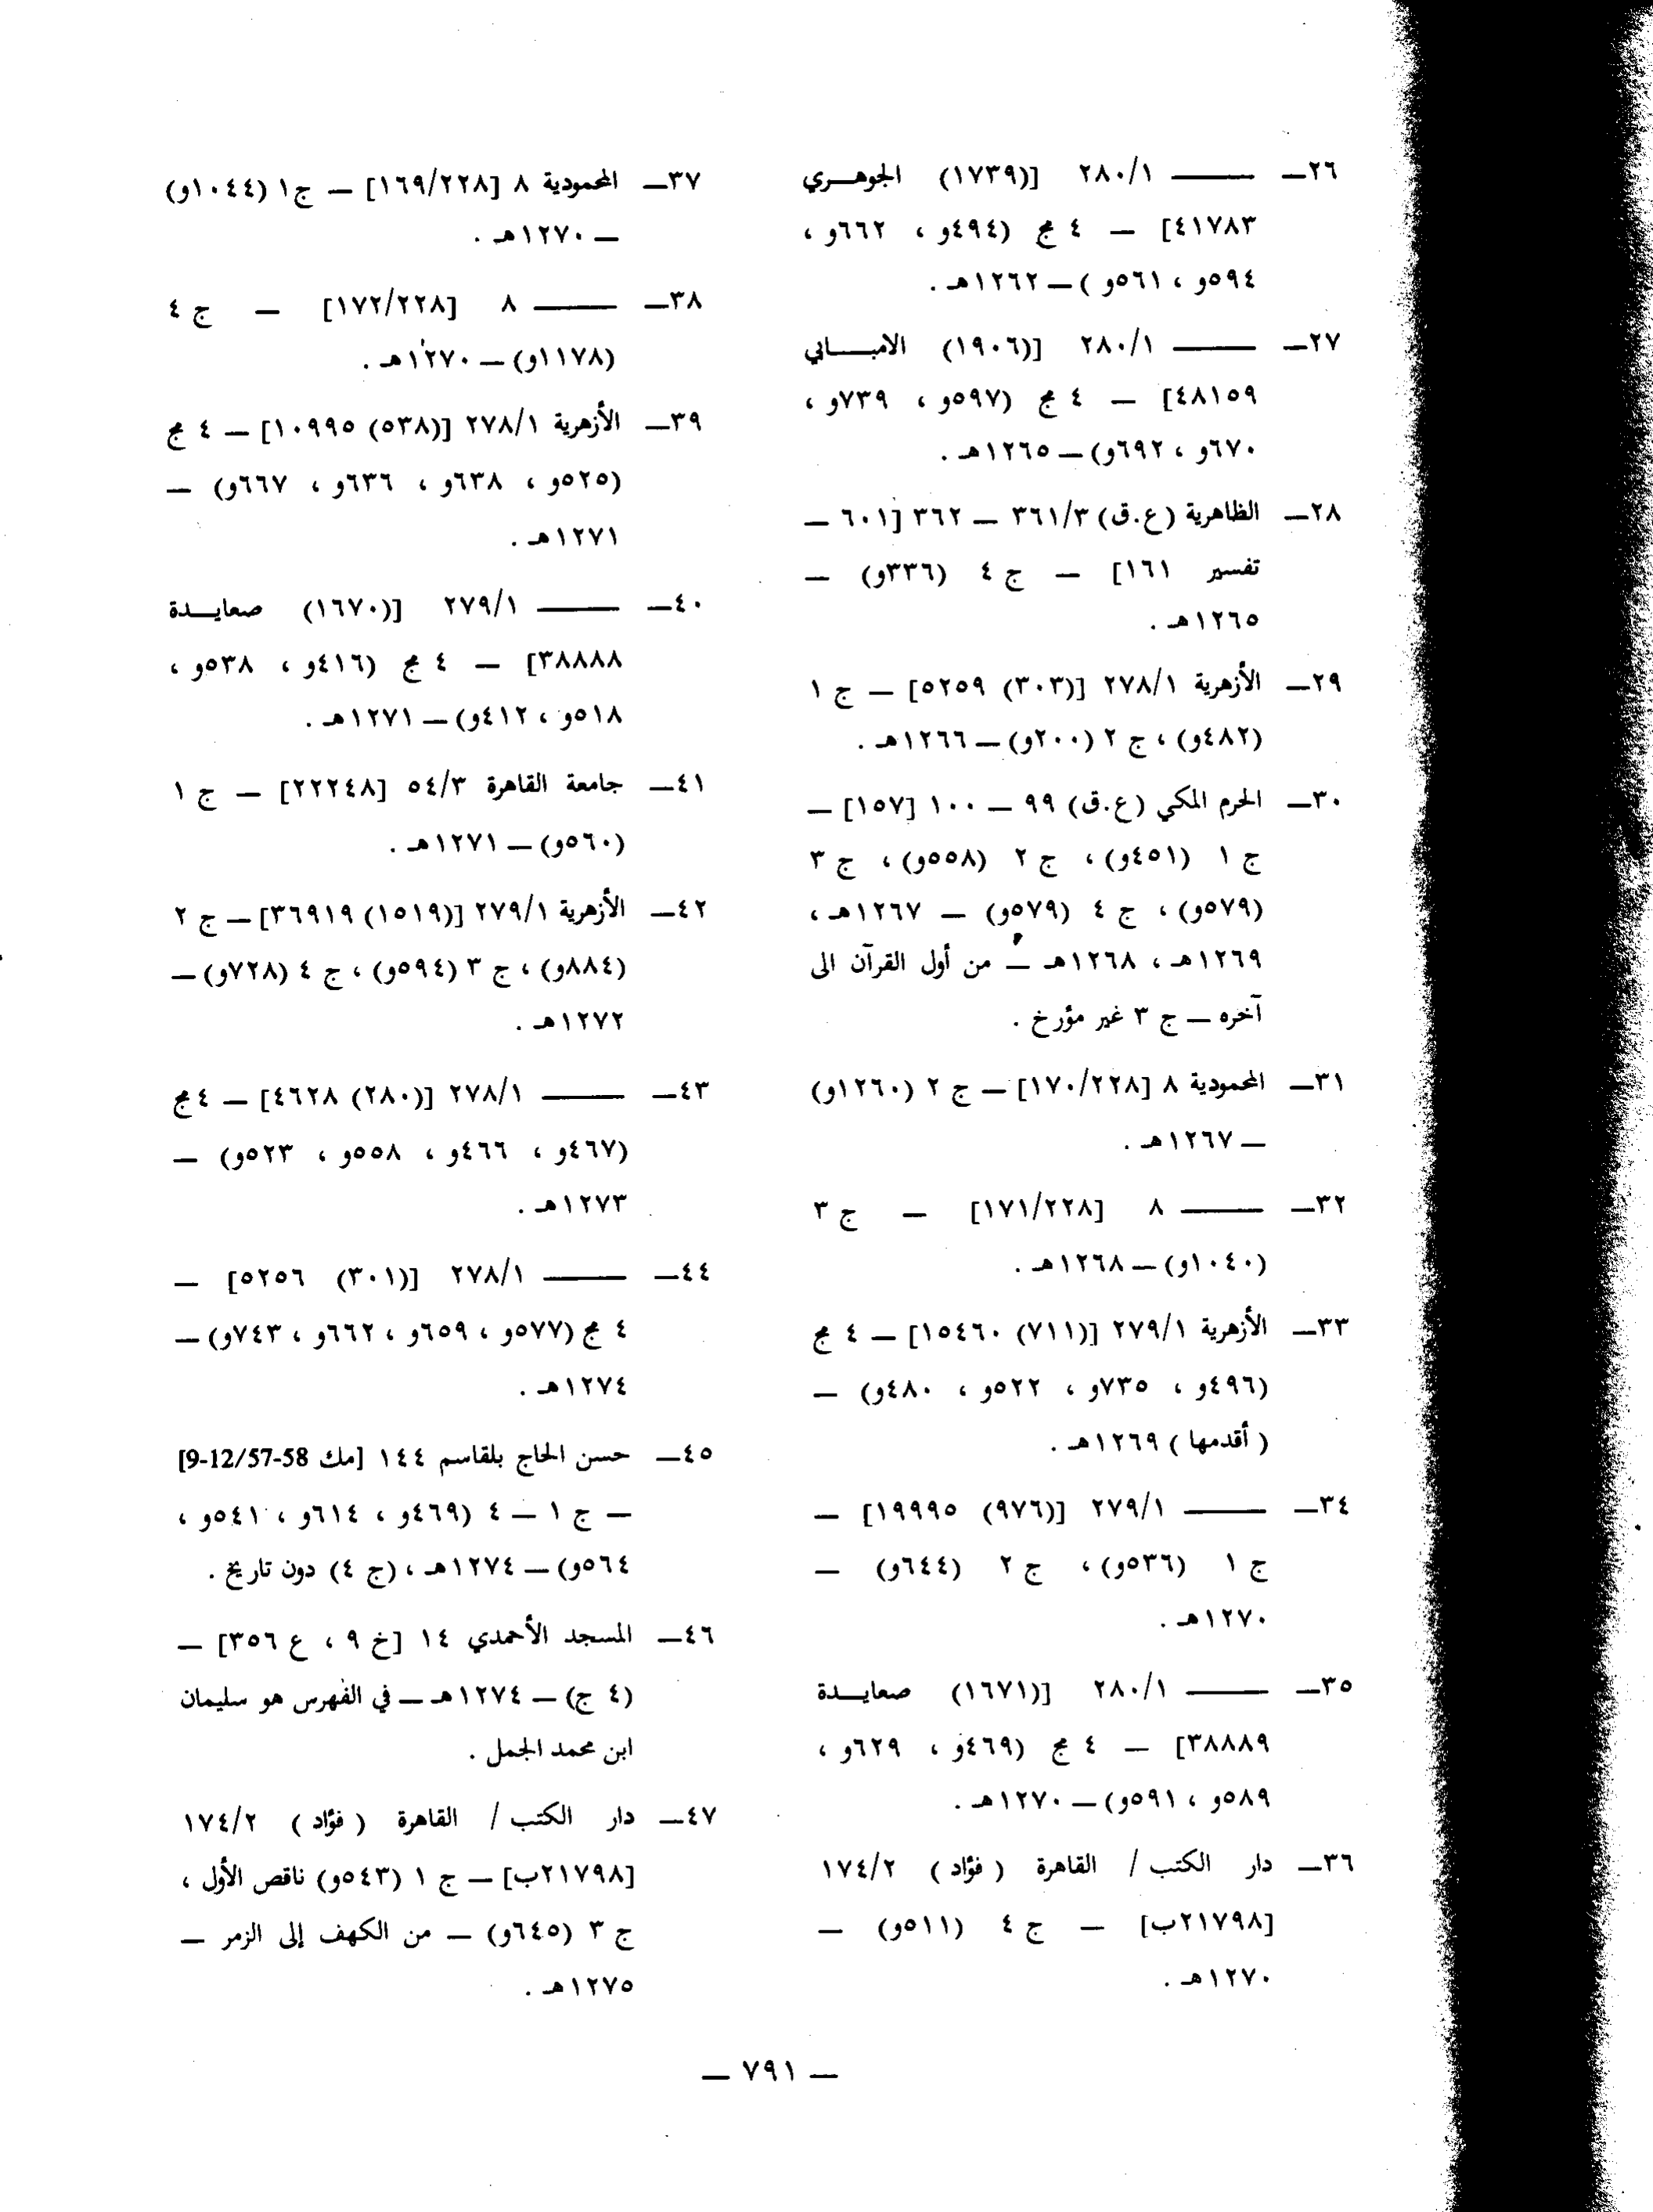 ٢٦ــ ــــــ ٢٨٠/١ [(١٧٣٩) الجوهـــري
٤١٧٨٣] ــ ٤ مج (٤٩٤و ، ٦٦٢و ،
٥٩٤و ، ٥٦١و ) ــ ١٢٦٢هـ .
٢٧ــ ــــــ ٢٨٠/١ [(١٩٠٦) الامبـــابي
٤٨١٥٩] ــ ٤ مج (٥٩٧و ، ٧٣٩و ،
٦٧٠و ، ٦٩٢و) ــ ١٢٦٥هـ .
٢٨ــ الظاهرية (ع.ق) ٣٦١/٣ ــ ٣٦٢ [٦٠١ ــ
تفسير ١٦١] ــ ج ٤ (٣٣٦و) ــ
١٢٦٥هـ .
٢٩ــ الأزهرية ٢٧٨/١ [(٣٠٣) ٥٢٥٩] ــ ج ١
(٤٨٢و) ، ج ٢ (٢٠٠و) ــ ١٢٦٦هـ .
٣٠ــ الحرم المكي (ع.ق) ٩٩ ــ ١٠٠ [١٥٧] ــ
ج ١ (٤٥١و) ، ج ٢ (٥٥٨و) ، ج ٣
(٥٧٩و) ، ج ٤ (٥٧٩و) ــ ١٢٦٧هـ ،
١٢٦٩هـ ، ١٢٦٨هـ ــ من أول القرآن الى
آخره ــ ج ٣ غير مؤرخ .
٣١ــ المحمودية ٨ [١٧٠/٢٢٨] ــ ج ٢ (١٢٦٠و)
ــ ١٢٦٧هـ .
٣٢ــ ــــــ ٨ [١٧١/٢٢٨] ــ ج ٣
(١٠٤٠و) ــ ١٢٦٨هـ .
٣٣ــ الأزهرية ٢٧٩/١ [(٧١١) ١٥٤٦٠] ــ ٤ مج
(٤٩٦و ، ٧٣٥و ، ٥٢٢و ، ٤٨٠و) ــ
( أقدمها ) ١٢٦٩هـ .
٣٤ــ ــــــ ٢٧٩/١ [(٩٧٦) ١٩٩٩٥] ــ
ج ١ (٥٣٦و) ، ج ٢ (٦٤٤و) ــ
١٢٧٠هـ .
٣٥ــ ــــــ ٢٨٠/١ [(١٦٧١) صعايـــدة
٣٨٨٨٩] ــ ٤ مج (٤٦٩و ، ٦٢٩و ،
٥٨٩و ، ٥٩١و) ــ ١٢٧٠هـ .
٣٦ــ دار الكتب / القاهرة ( فؤاد ) ١٧٤/٢
[٢١٧٩٨ب] ــ ج ٤ (٥١١و) ــ
١٢٧٠هـ .
٣٧ــ المحمودية ٨ [١٦٩/٢٢٨] ــ ج١ (١٠٤٤و)
ــ ١٢٧٠هـ .
٣٨ــ ــــــ ٨ [١٧٢/٢٢٨] ــ ج ٤
(١١٧٨و) ــ ١٢٧٠هـ .
٣٩ــ الأزهرية ٢٧٨/١ [(٥٣٨) ١٠٩٩٥] ــ ٤ مج
(٥٢٥و ، ٦٣٨و ، ٦٣٦و ، ٦٦٧و) ــ
١٢٧١هـ .
٤٠ــ ــــــ ٢٧٩/١ [(١٦٧٠) صعايـــدة
٣٨٨٨٨] ــ ٤ مج (٤١٦و ، ٥٣٨و ،
٥١٨و ، ٤١٢و) ــ ١٢٧١هـ .
٤١ــ جامعة القاهرة ٥٤/٣ [٢٢٢٤٨] ــ ج ١
(٥٦٠و) ــ ١٢٧١هـ .
٤٢ــ الأزهرية ٢٧٩/١ [(١٥١٩) ٣٦٩١٩] ــ ج ٢
(٨٨٤و) ، ج ٣ (٥٩٤و) ، ج ٤ (٧٢٨و) ــ
١٢٧٢هـ .
٤٣ــ ــــــ ٢٧٨/١ [(٢٨٠) ٤٦٢٨] ــ ٤ مج
(٤٦٧و ، ٤٦٦و ، ٥٥٨و ، ٥٢٣و) ــ
١٢٧٣هـ .
٤٤ــ ــــــ ٢٧٨/١ [(٣٠١) ٥٢٥٦] ــ
٤ مج (٥٧٧و ، ٦٥٩و ، ٦٦٢و ، ٧٤٣و) ــ
١٢٧٤هـ .
٤٥ــ حسن الحاج بلقاسم ١٤٤ [مك 9-12/57-58]
ــ ج ١ ــ ٤ (٤٦٩و ، ٦١٤و ، ٥٤١و ،
٥٦٤و) ــ ١٢٧٤هـ ، (ج ٤) دون تاريخ .
٤٦ــ المسجد الأحمدي ١٤ [خ ٩ ، ع ٣٥٦] ــ
(٤ ج) ــ ١٢٧٤هـ ــ في الفهرس هو سليمان
ابن محمد الجمل .
٤٧ــ دار الكتب / القاهرة ( فؤاد ) ١٧٤/٢
[٢١٧٩٨ب] ــ ج ١ (٥٤٣و) ناقص الأول ،
ج ٣ (٦٤٥و) ــ من الكهف إلى الزمر ــ
١٢٧٥هـ .
ــ ٧٩١ ــ